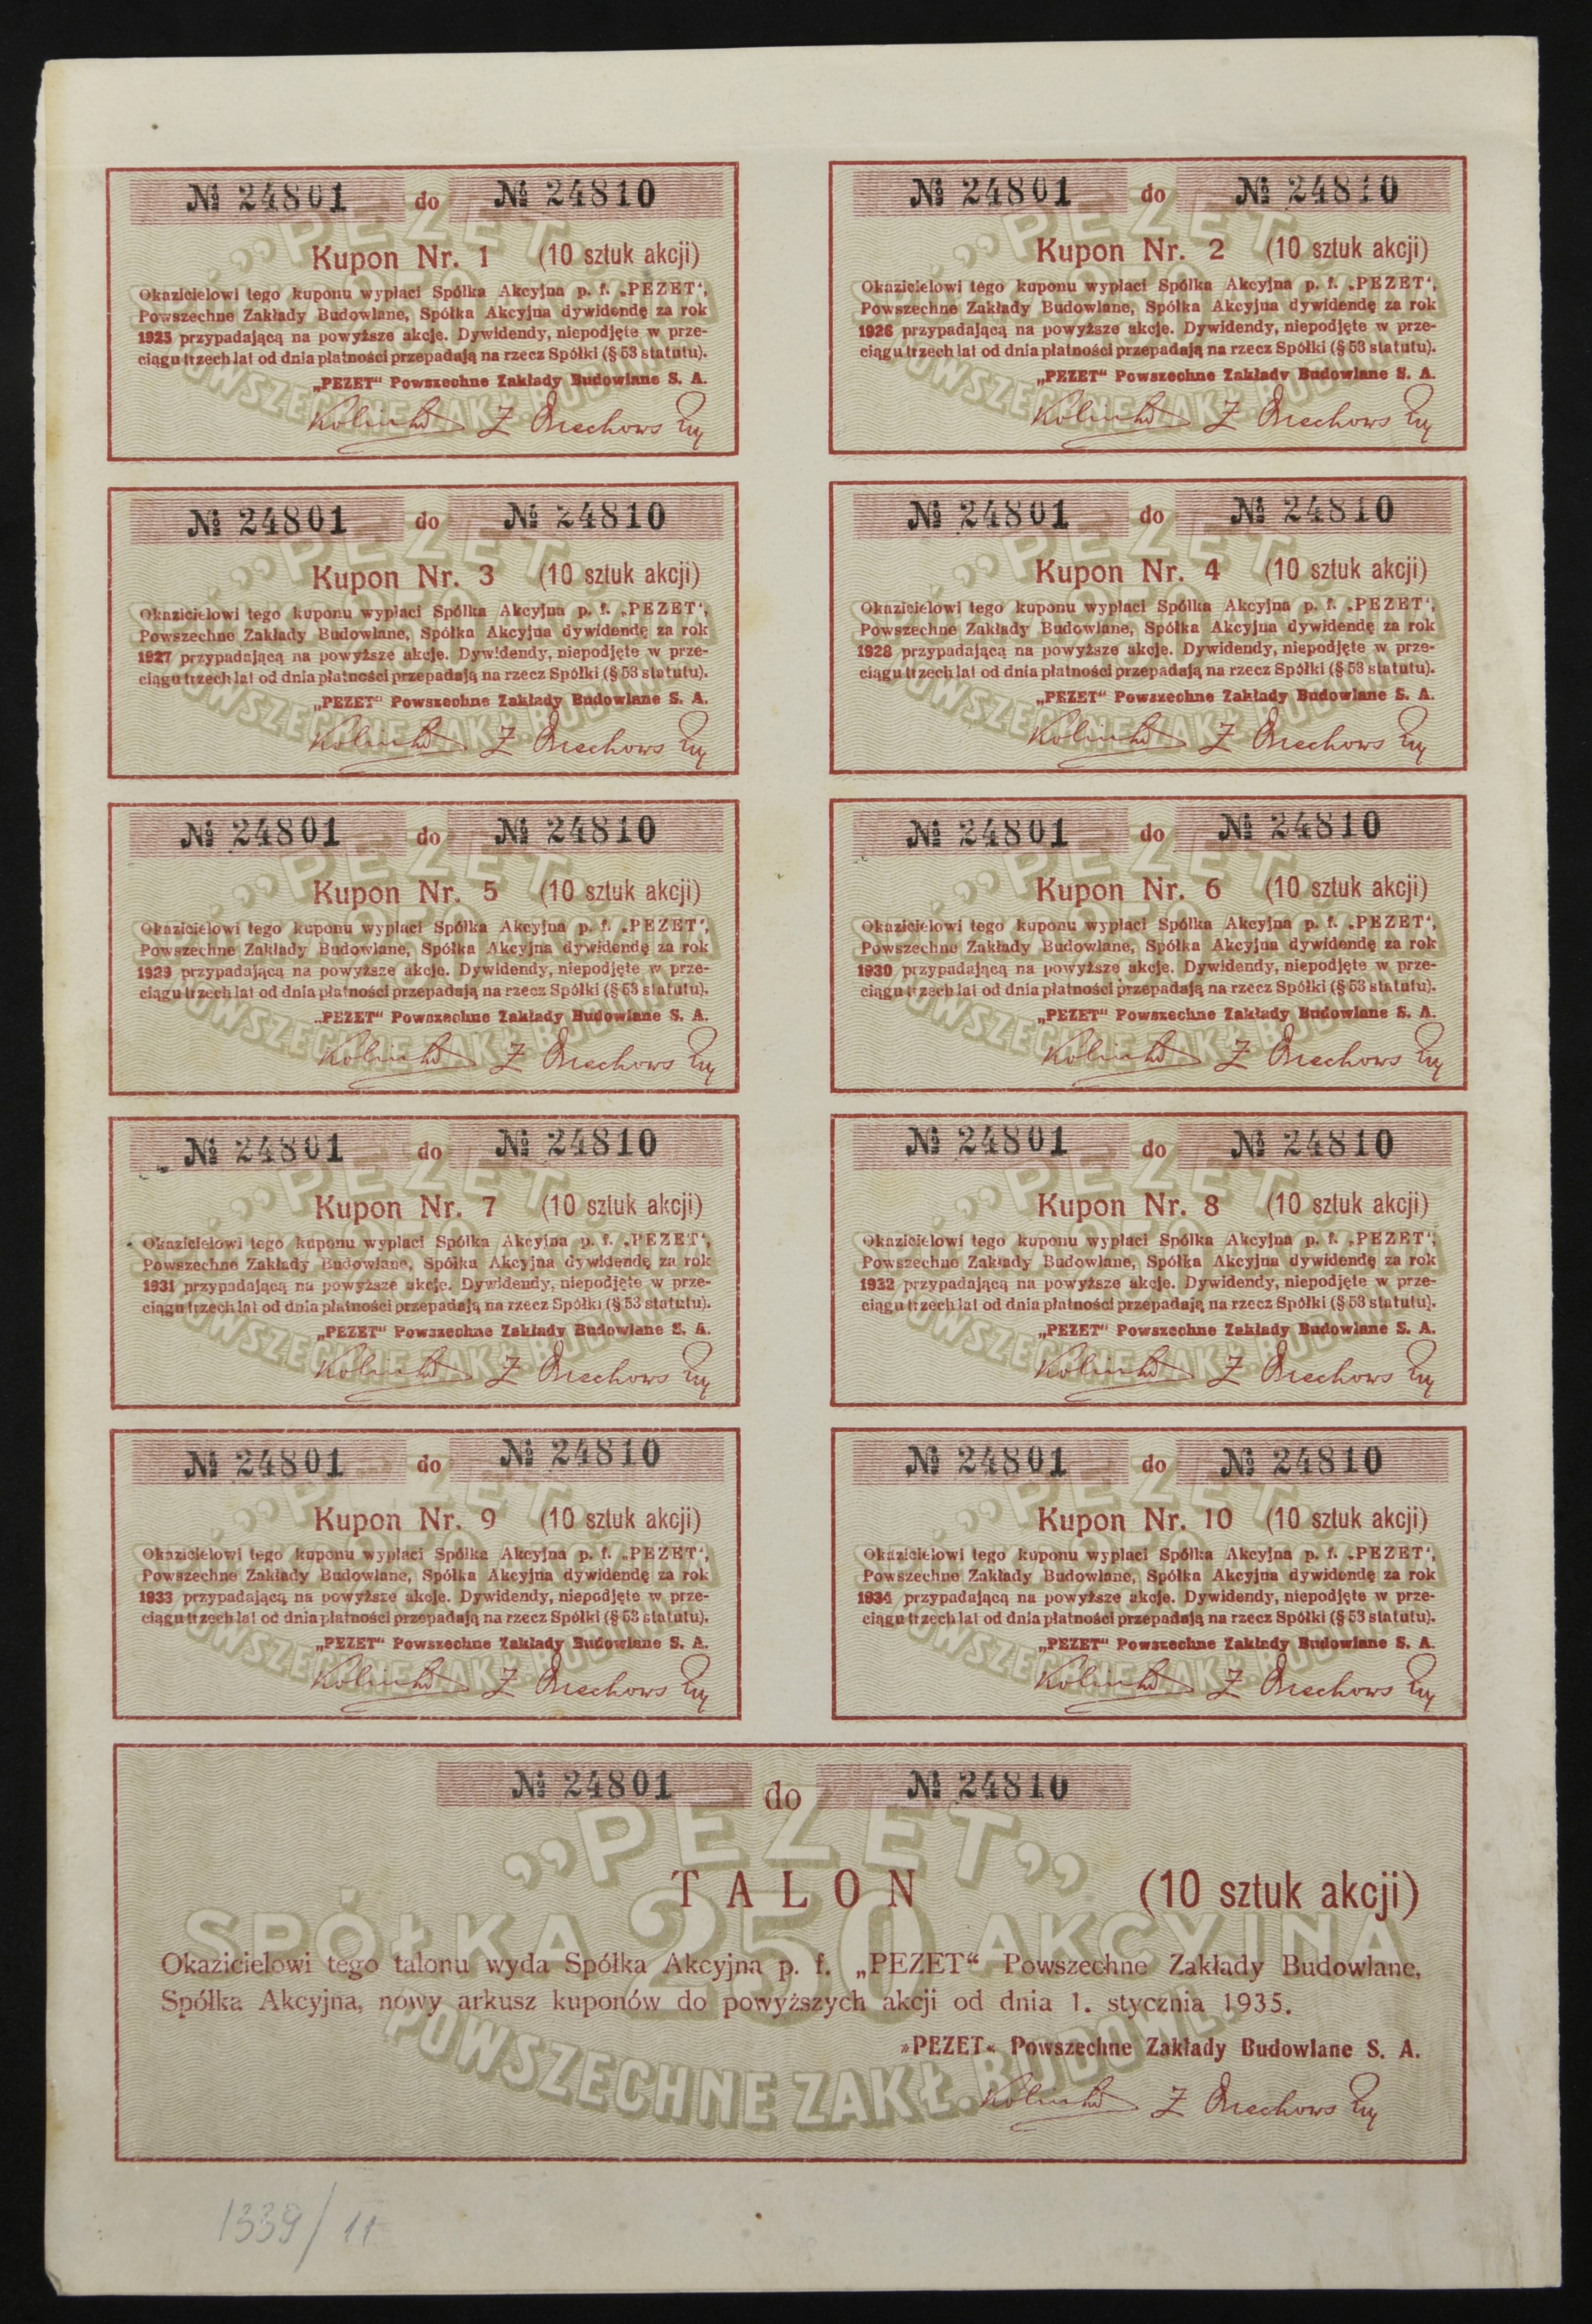 № 24801 do № 24810
Kupon Nr. 1 (10 sztuk akcji)
Okazicielowi tego kuponu wypłaci Spółka Akcyjna p. f. „PEZET“,
Powszechne Zakłady Budowlane, Spółka Akcyjna dywidendę za rok
1925 przypadającą na powyższe akcje. Dywidendy, niepodjęte w prze-
ciągu trzech lat od dnia płatności przepadają na rzecz Spółki (§ 53 statutu).
„PEZET“ Powszechne Zakłady Budowlane S. A.
№ 24801 do № 24810
Kupon Nr. 2 (10 sztuk akcji)
Okazicielowi tego kuponu wypłaci Spółka Akcyjna p. f. „PEZET“,
Powszechne Zakłady Budowlane, Spółka Akcyjna dywidendę za rok
1926 przypadającą na powyższe akcje. Dywidendy, niepodjęte w prze-
ciągu trzech lat od dnia płatności przepadają na rzecz Spółki (§ 53 statutu).
„PEZET“ Powszechne Zakłady Budowlane S. A.
№ 24801 do № 24810
Kupon Nr. 3 (10 sztuk akcji)
Okazicielowi tego kuponu wypłaci Spółka Akcyjna p. f. „PEZET“,
Powszechne Zakłady Budowlane, Spółka Akcyjna dywidendę za rok
1927 przypadającą na powyższe akcje. Dywidendy, niepodjęte w prze-
ciągu trzech lat od dnia płatności przepadają na rzecz Spółki (§ 53 statutu).
„PEZET“ Powszechne Zakłady Budowlane S. A.
№ 24801 do № 24810
Kupon Nr. 4 (10 sztuk akcji)
Okazicielowi tego kuponu wypłaci Spółka Akcyjna p. f. „PEZET“,
Powszechne Zakłady Budowlane, Spółka Akcyjna dywidendę za rok
1928 przypadającą na powyższe akcje. Dywidendy, niepodjęte w prze-
ciągu trzech lat od dnia płatności przepadają na rzecz Spółki (§ 53 statutu).
„PEZET“ Powszechne Zakłady Budowlane S. A.
№ 24801 do № 24810
Kupon Nr. 5 (10 sztuk akcji)
Okazicielowi tego kuponu wypłaci Spółka Akcyjna p. f. „PEZET“,
Powszechne Zakłady Budowlane, Spółka Akcyjna dywidendę za rok
1929 przypadającą na powyższe akcje. Dywidendy, niepodjęte w prze-
ciągu trzech lat od dnia płatności przepadają na rzecz Spółki (§ 53 statutu).
„PEZET“ Powszechne Zakłady Budowlane S. A.
№ 24801 do № 24810
Kupon Nr. 6 (10 sztuk akcji)
Okazicielowi tego kuponu wypłaci Spółka Akcyjna p. f. „PEZET“,
Powszechne Zakłady Budowlane, Spółka Akcyjna dywidendę za rok
1930 przypadającą na powyższe akcje. Dywidendy, niepodjęte w prze-
ciągu trzech lat od dnia płatności przepadają na rzecz Spółki (§ 53 statutu).
„PEZET“ Powszechne Zakłady Budowlane S. A.
№ 24801 do № 24810
Kupon Nr. 7 (10 sztuk akcji)
Okazicielowi tego kuponu wypłaci Spółka Akcyjna p. f. „PEZET“,
Powszechne Zakłady Budowlane, Spółka Akcyjna dywidendę za rok
1931 przypadającą na powyższe akcje. Dywidendy, niepodjęte w prze-
ciągu trzech lat od dnia płatności przepadają na rzecz Spółki (§ 53 statutu).
„PEZET“ Powszechne Zakłady Budowlane S. A.
№ 24801 do № 24810
Kupon Nr. 8 (10 sztuk akcji)
Okazicielowi tego kuponu wypłaci Spółka Akcyjna p. f. „PEZET“,
Powszechne Zakłady Budowlane, Spółka Akcyjna dywidendę za rok
1932 przypadającą na powyższe akcje. Dywidendy, niepodjęte w prze-
ciągu trzech lat od dnia płatności przepadają na rzecz Spółki (§ 53 statutu).
„PEZET“ Powszechne Zakłady Budowlane S. A.
№ 24801 do № 24810
Kupon Nr. 9 (10 sztuk akcji)
Okazicielowi tego kuponu wypłaci Spółka Akcyjna p. f. „PEZET“,
Powszechne Zakłady Budowlane, Spółka Akcyjna dywidendę za rok
1933 przypadającą na powyższe akcje. Dywidendy, niepodjęte w prze-
ciągu trzech lat od dnia płatności przepadają na rzecz Spółki (§ 53 statutu).
„PEZET“ Powszechne Zakłady Budowlane S. A.
№ 24801 do № 24810
Kupon Nr. 10 (10 sztuk akcji)
Okazicielowi tego kuponu wypłaci Spółka Akcyjna p. f. „PEZET“,
Powszechne Zakłady Budowlane, Spółka Akcyjna dywidendę za rok
1934 przypadającą na powyższe akcje. Dywidendy, niepodjęte w prze-
ciągu trzech lat od dnia płatności przepadają na rzecz Spółki (§ 53 statutu).
„PEZET“ Powszechne Zakłady Budowlane S. A.
№ 24801 do № 24810
„PEZET„
TALON (10 sztuk akcji)
SPÓŁKA 250 AKCYJNA
Okazicielowi tego talonu wyda Spółka Akcyjna p. f. „PEZET“ Powszechne Zakłady Budowlane,
Spółka Akcyjna, nowy arkusz kuponów do powyższych akcji od dnia 1. stycznia 1935.
POWSZECHNE ZAKŁ. BUDOWL.
»PEZET« Powszechne Zakłady Budowlane S. A.
1339/11